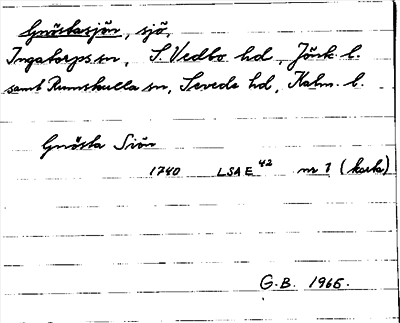 Gnöstasjön, sjö,
Ingatorps sn, S. Vedbo hd, Jönk. l.
samt Rumskulla sn, Sevede hd, Kalm. l.
Gnösta Siön
1740 LSA E 42 nr 1 (karta)
G.B. 1965.